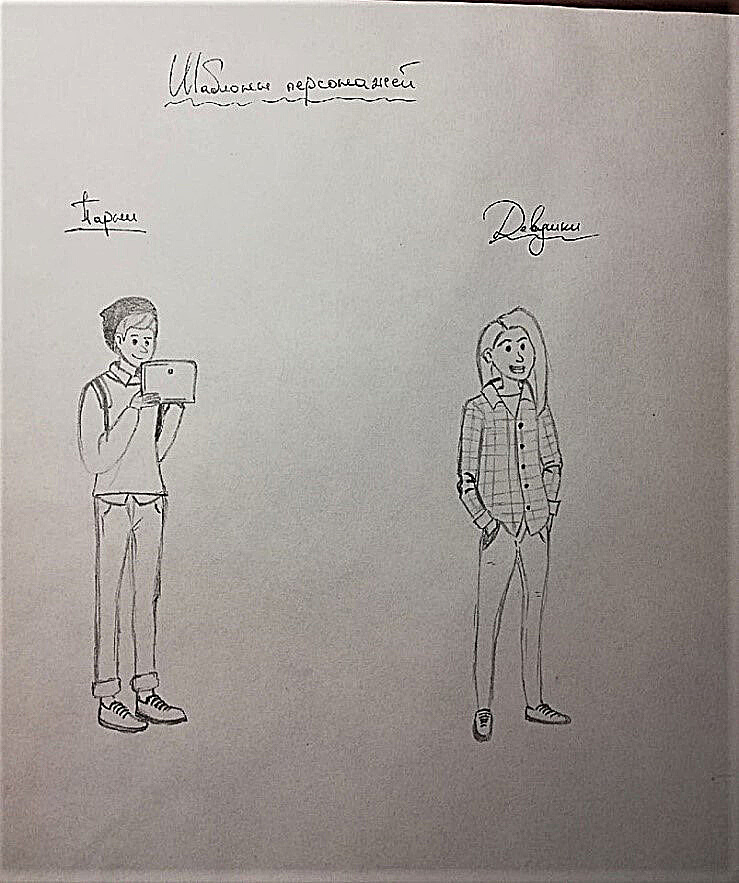 Шаблоны персонажей
Парни
Девушки